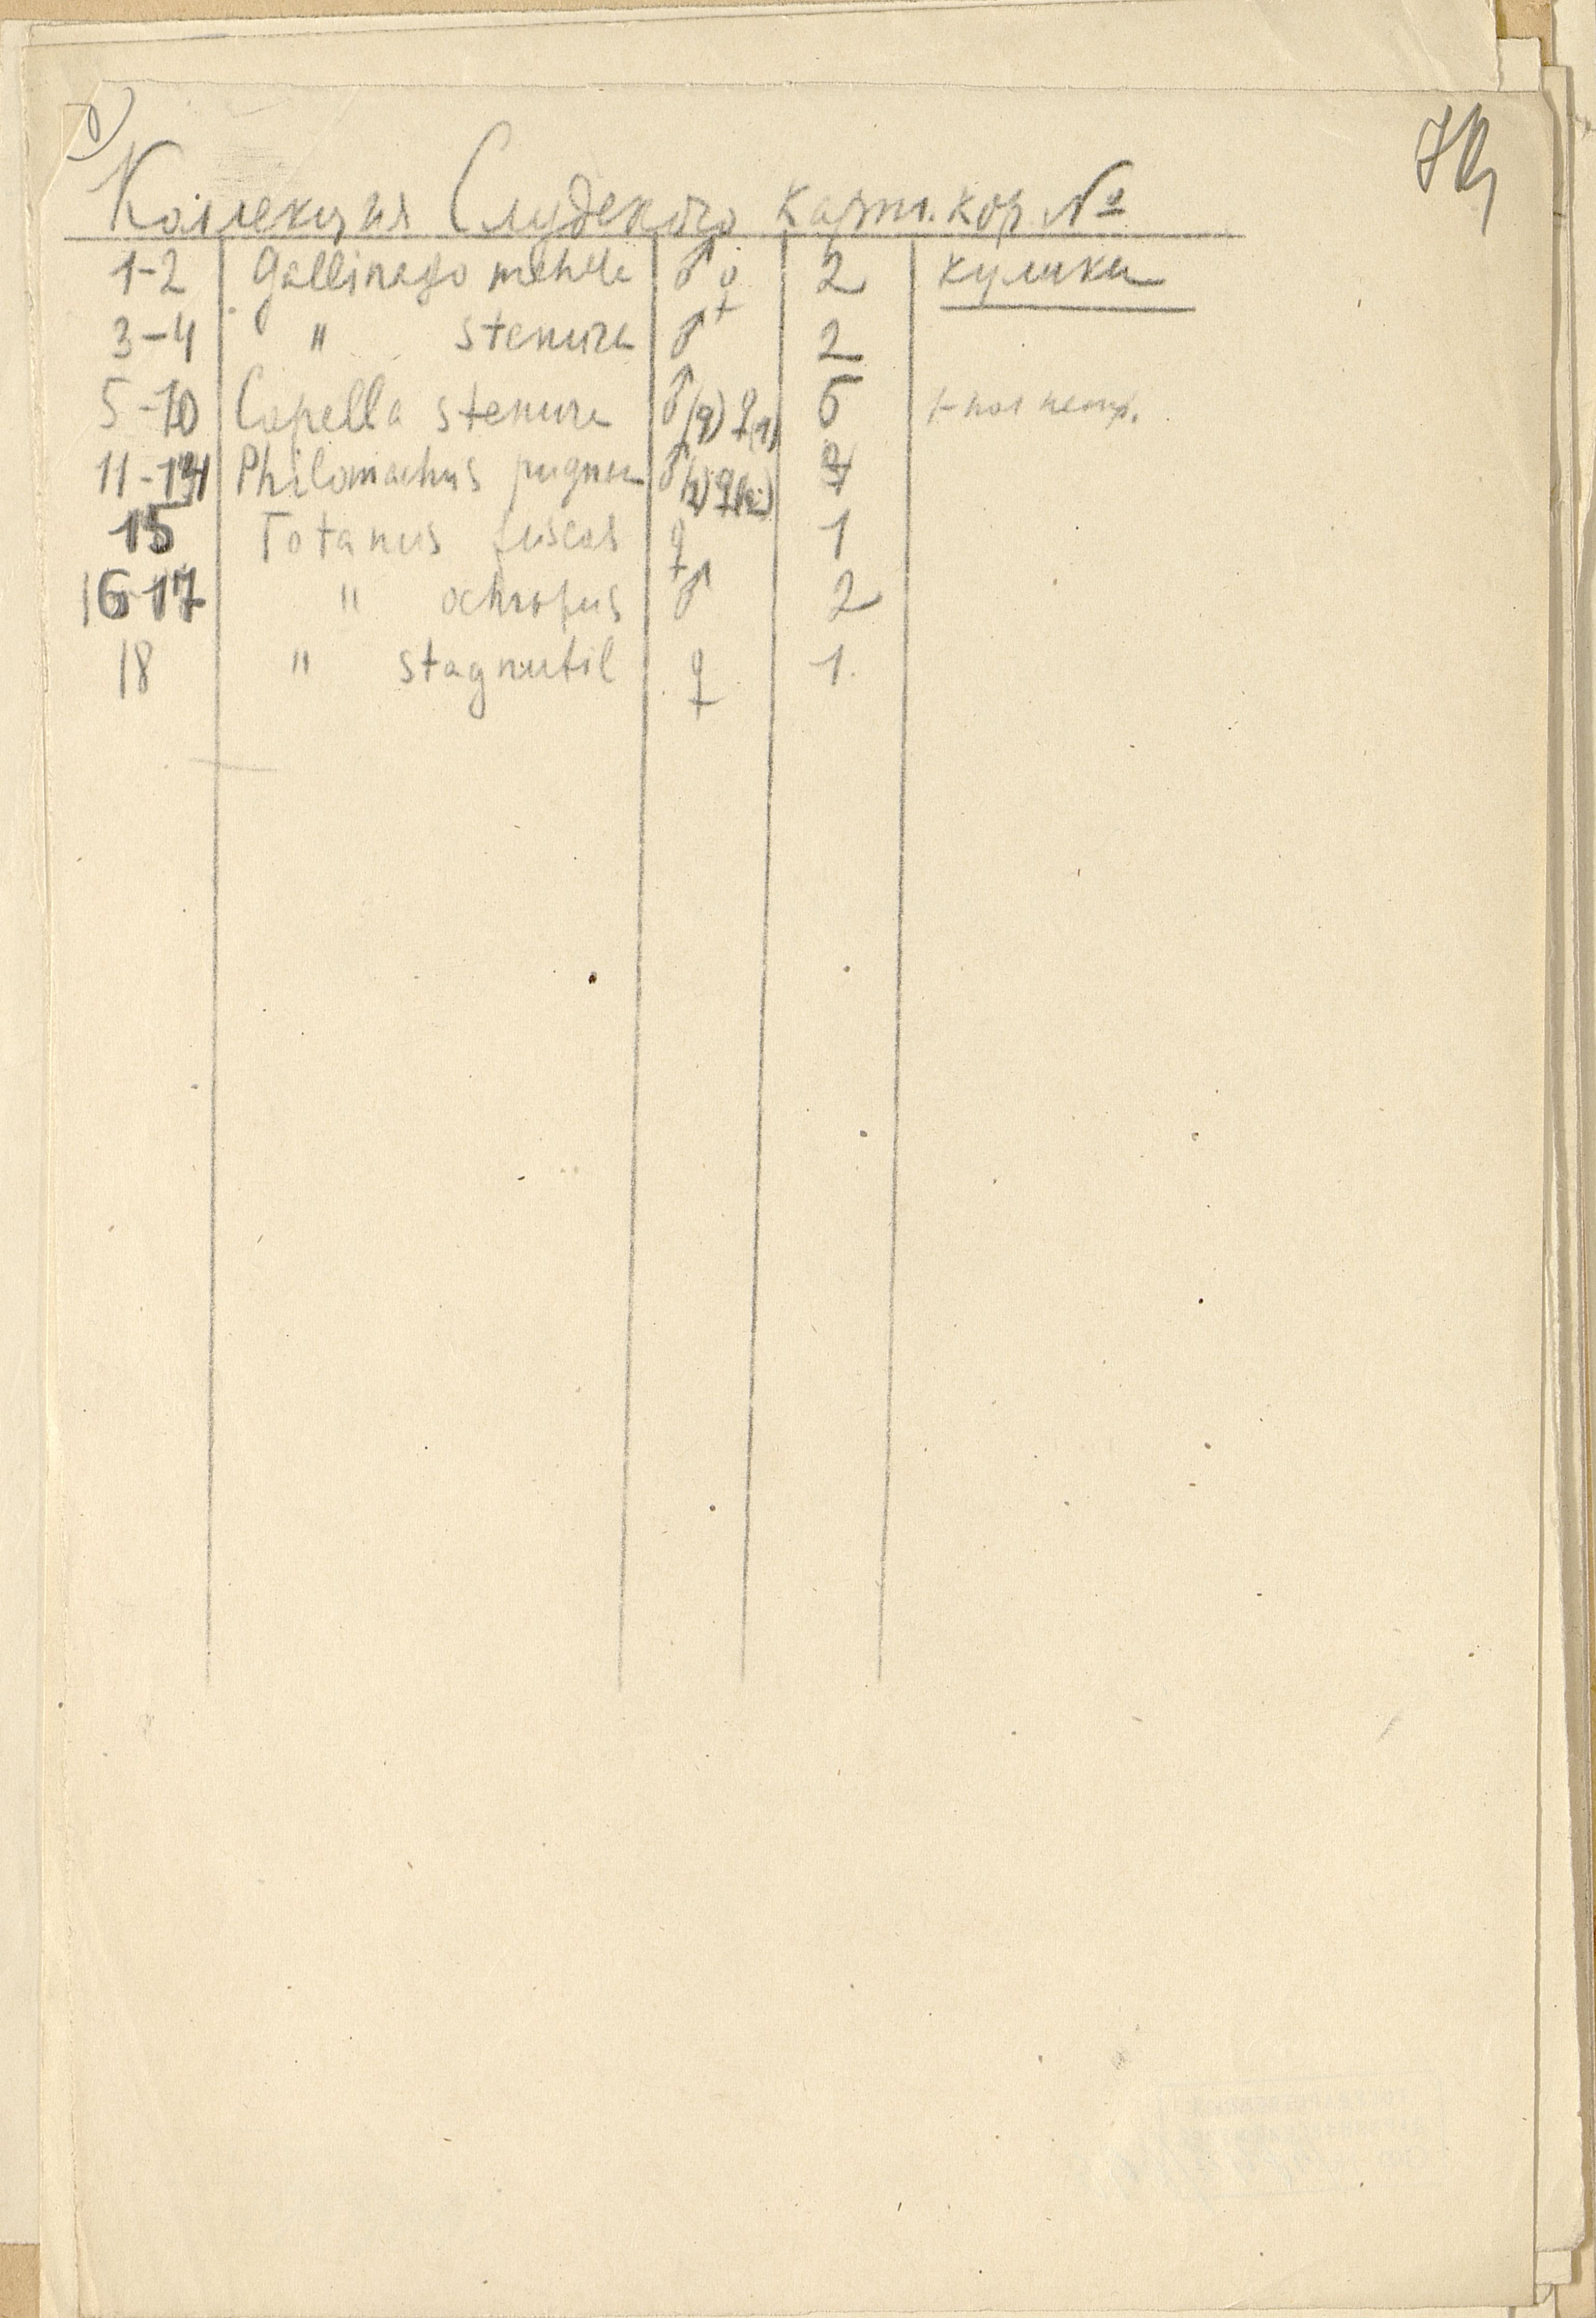 1)
Коллекция Слудского карт. кор. №
1-2 Gallinago mehele ♂ ♀ 2 кулики
3-4 " stenura ♂ 2
5-10 Capella stenura ♂(4) ♀(1) 6 1-пол неопр.
11-14 Philomachus pugnax ♂(2) ♀(2) 4
15 Totanus fuscus ♀ 1
16-17 " ochropus ♂ 2
18 " stagnatil ♀ 1.